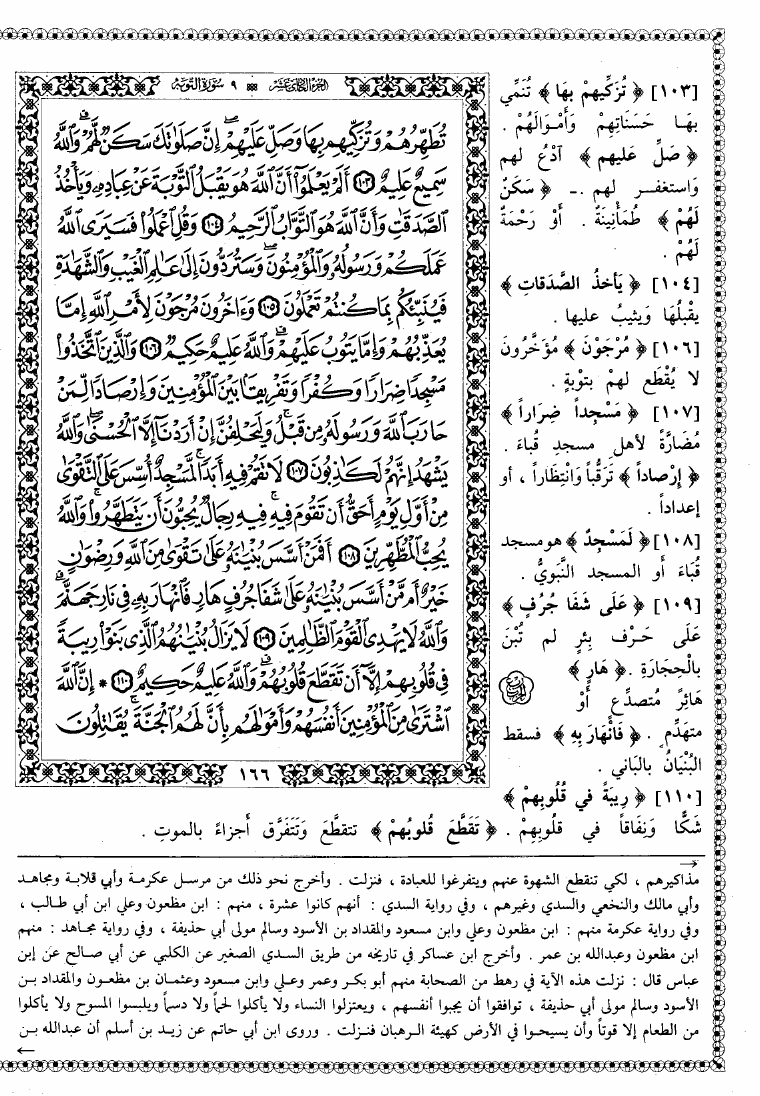 [١٠٣] ﴿ تُزَكِّيهِمْ بِهَا ﴾ تُنَمِّي
بِهَا حَسَنَاتِهِمْ وَأَمْوَالَهُمْ .
﴿ صَلِّ عليهم ﴾ آدْعُ لهم
وَاستغفر لهم .ـ ﴿ سَكَنٌ
لَهُمْ ﴾ طُمَأْنِينَةٌ . أَوْ رَحْمَةٌ
لَهُمْ .
[١٠٤] ﴿ يَأخذُ الصَّدَقاتِ ﴾
يقْبلُهَا وَيثيبُ عليها .
[١٠٦] ﴿ مُرْجَوْنَ ﴾ مُؤَخَّرُونَ
لا يُقْطَع لهمْ بتوْبةٍ .
[١٠٧] ﴿ مَسْجِداً ضِرَاراً ﴾
مُضَارَّةً لأهلِ مسجدِ قُباءَ .
﴿ إِرْصاداً ﴾ تَرَقُّباً وَانْتِظَاراً ، أو
إعداداً .
[١٠٨] ﴿ لَمَسْجِدٌ ﴾ هو مسجد
قُبَاءَ أَو المسجد النَّبَوِيُّ .
[١٠٩] ﴿ عَلَى شَفَا جُرُفٍ ﴾
عَلَى حَرْف بِئرٍ لم تُبْنَ
بالْحِجَارَةِ . ﴿ هَارٍ ﴾
هَائِرٌ مُتصدِّع أَوْ
متهَدِّمٍ . ﴿ فَأنْهَارَ بِهِ ﴾ فسقط
البُنْيَانُ بالبَاني .
[١١٠] ﴿ رِيبَةً في قُلُوبِهِمْ ﴾
شَكًّا وَنِفَاقاً في قلُوبِهِمْ . ﴿ تَقَطَّعَ قُلوبُهمْ ﴾ تتقطَّعَ وَتَتَفَرَّق أَجزاءً بالموتِ .
الجزء الحادي عشر ٩ سورة التوبة
تُطَهِّرُهُمْ وَتُزَكِّيهِم بِهَا وَصَلِّ عَلَيْهِمْ إِنَّ صَلَوٰتَكَ سَكَنٌ لَّهُمْ وَٱللَّهُ
سَمِيعٌ عَلِيمٌ ١٠٣ أَلَمْ يَعْلَمُوٓا۟ أَنَّ ٱللَّهَ هُوَ يَقْبَلُ ٱلتَّوْبَةَ عَنْ عِبَادِهِۦ وَيَأْخُذُ
ٱلصَّدَقَٰتِ وَأَنَّ ٱللَّهَ هُوَ ٱلتَّوَّابُ ٱلرَّحِيمُ ١٠٤ وَقُلِ ٱعْمَلُوا۟ فَسَيَرَى ٱللَّهُ
عَمَلَكُمْ وَرَسُولُهُۥ وَٱلْمُؤْمِنُونَ وَسَتُرَدُّونَ إِلَىٰ عَٰلِمِ ٱلْغَيْبِ وَٱلشَّهَٰدَةِ
فَيُنَبِّئُكُم بِمَا كُنتُمْ تَعْمَلُونَ ١٠٥ وَءَاخَرُونَ مُرْجَوْنَ لِأَمْرِ ٱللَّهِ إِمَّا
يُعَذِّبُهُمْ وَإِمَّا يَتُوبُ عَلَيْهِمْ وَٱللَّهُ عَلِيمٌ حَكِيمٌ ١٠٦ وَٱلَّذِينَ ٱتَّخَذُوا۟
مَسْجِدًا ضِرَارًا وَكُفْرًا وَتَفْرِيقًۢا بَيْنَ ٱلْمُؤْمِنِينَ وَإِرْصَادًا لِّمَنْ
حَارَبَ ٱللَّهَ وَرَسُولَهُۥ مِن قَبْلُ وَلَيَحْلِفُنَّ إِنْ أَرَدْنَآ إِلَّا ٱلْحُسْنَىٰ وَٱللَّهُ
يَشْهَدُ إِنَّهُمْ لَكَٰذِبُونَ ١٠٧ لَا تَقُمْ فِيهِ أَبَدًا لَّمَسْجِدٌ أُسِّسَ عَلَى ٱلتَّقْوَىٰ
مِنْ أَوَّلِ يَوْمٍ أَحَقُّ أَن تَقُومَ فِيهِ فِيهِ رِجَالٌ يُحِبُّونَ أَن يَتَطَهَّرُوا۟ وَٱللَّهُ
يُحِبُّ ٱلْمُطَّهِّرِينَ ١٠٨ أَفَمَنْ أَسَّسَ بُنْيَٰنَهُۥ عَلَىٰ تَقْوَىٰ مِنَ ٱللَّهِ وَرِضْوَٰنٍ
خَيْرٌ أَم مَّنْ أَسَّسَ بُنْيَٰنَهُۥ عَلَىٰ شَفَا جُرُفٍ هَارٍ فَٱنْهَارَ بِهِۦ فِى نَارِ جَهَنَّمَ
وَٱللَّهُ لَا يَهْدِى ٱلْقَوْمَ ٱلظَّٰلِمِينَ ١٠٩ لَا يَزَالُ بُنْيَٰنُهُمُ ٱلَّذِى بَنَوْا۟ رِيبَةً
فِى قُلُوبِهِمْ إِلَّآ أَن تَقَطَّعَ قُلُوبُهُمْ وَٱللَّهُ عَلِيمٌ حَكِيمٌ ١١٠ * إِنَّ ٱللَّهَ
ٱشْتَرَىٰ مِنَ ٱلْمُؤْمِنِينَ أَنفُسَهُمْ وَأَمْوَٰلَهُم بِأَنَّ لَهُمُ ٱلْجَنَّةَ يُقَٰتِلُونَ
١٦٦
مذاكيرهم ، لكي تنقطع الشهوة عنهم ويتفرغوا للعبادة ، فنزلت . وأخرج نحو ذلك من مرسل عكرمة وأبي قلابة ومجاهد
وأبي مالك والنخعي والسدي وغيرهم ، وفي رواية السدي : أنهم كانوا عشرة ، منهم : ابن مظعون وعلي ابن أبي طالب ،
وفي رواية عكرمة منهم : ابن مظعون وعلي وابن مسعود والمقداد بن الأسود وسالم مولى أبي حذيفة ، وفي رواية مجاهد : منهم
ابن مظعون وعبدالله بن عمر . وأخرج ابن عساكر في تاريخه من طريق السدي الصغير عن الكلبي عن أبي صالح عن إبن
عباس قال : نزلت هذه الآية في رهط من الصحابة منهم أبو بكر وعمر وعلي وابن مسعود وعثمان بن مظعون والمقداد بن
الأسود وسالم مولى أبي حذيفة ، توافقوا أن يجبوا أنفسهم ، ويعتزلوا النساء ولا يأكلوا لحماً ولا دسماً ويلبسوا المسوح ولا يأكلوا
من الطعام إلا قوتاً وأن يسيحوا في الأرض كهيئة الرهبان فنزلت . وروى ابن أبي حاتم عن زيد بن أسلم أن عبدالله بن